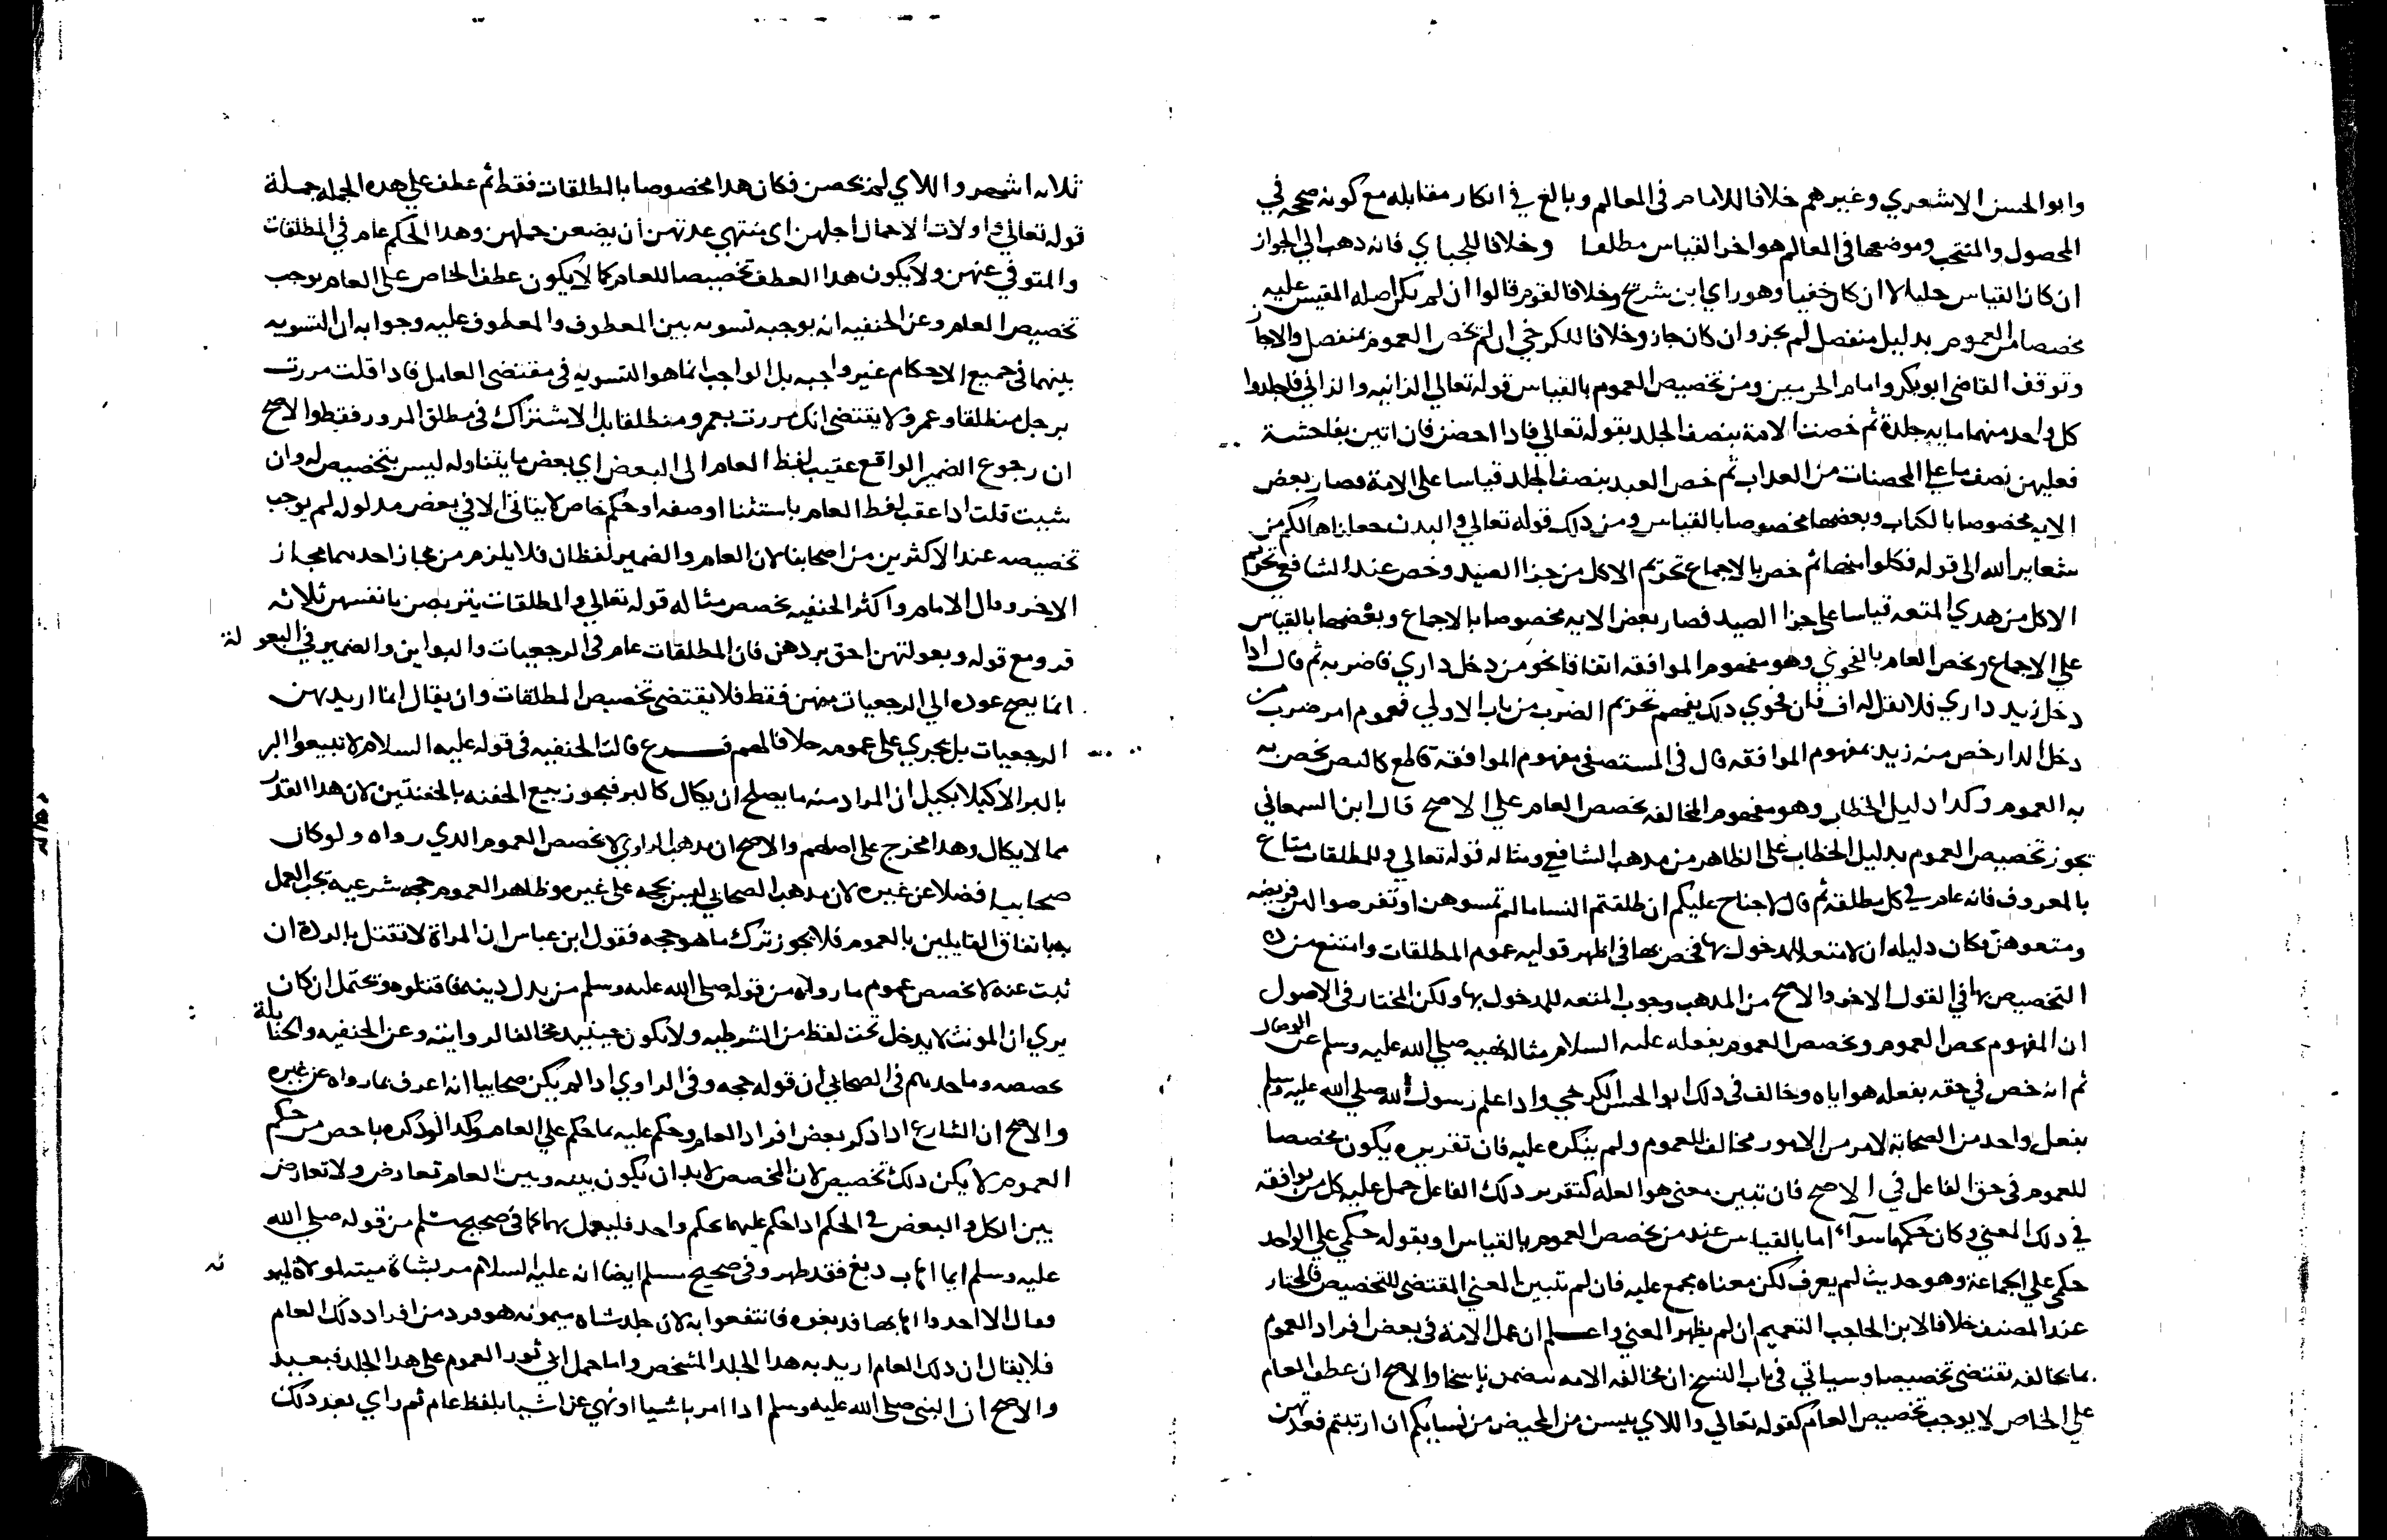 وابو الحسن الاشعري وغيرهم خلافا للامام في المعالم وبالغ في انكار مقابله مع كونه صححه في
المحصول والمنتخب وموضعها في المعالم هو اخر القياس مطلقا وخلافا للجباي فانه دهب الي الجواز
ان كان القياس جليا لا ان كان خفيا وهو راي ابن شريح وخلافا لقوم قالوا ان لم يكن اصله المقيس عليه
مخصصا من العموم بدليل منفصل لم يجز وان كان جاز وخلافا للكرخي ان لم يخص العموم بمنفصل والا جاز
وتوقف القاضي ابو بكر وامام الحرمين ومن تخصيص العموم بالقياس قوله تعالي الزانيه والزاني فاجلدوا
كل واحد منهما مايه جلدة ثم خصت الامة بنصف الجلد بقوله تعالي فادا احصن فان اتين بفاحشة
فعليهن نصف ما علي المحصنات من العداب ثم خص العبد بنصف الجلد قياسا علي الامة فصار بعض
الايه مخصوصا بالكتاب وبعضها مخصوصا بالقياس ومن دلك قوله تعالي والبدن جعلناها لكم من
شعاير الله الي قوله فكلوا منها ثم خص بالاجماع تحريم الاكل من جزا الصيد وخص عند الشافعي تحريم
الاكل من هدي المتعه قياسا علي جزا الصيد فصار بعض الايه مخصوصا بالاجماع وبعضها بالقياس
علي الاجماع ويخص العام بالفحوي وهو مفهوم الموافقه اتفاقا نحو من دخل داري فاضربه ثم قال ادا
دخل زيد داري فلا تقل له اف فان فحوي دلك يفهم تحريم الضرب من باب الاولي فعموم امر ضرب من
دخل الدار خص منه زيد بمفهوم الموافقه قال في المستصفي مفهوم الموافقه قاطع كالنص يخص به
به العموم وكدا دليل الخطاب وهو مفهوم المخالفه يخصص العام علي الاصح قال ابن السمعاني
يجوز تخصيص العموم بدليل الخطاب علي الظاهر من مدهب الشافعي ومثاله قوله تعالي وللمطلقات متاع
بالمعروف فانه عام في كل مطلقة ثم قال لا جناح عليكم ان طلقتم النسا ما لم تمسوهن او تفرضوا لهن فريضه
ومتعوهن وكان دليله ان لا متعه للمدخول بها فخص بها في اظهر قوليه عموم المطلقات وامتنع من
التخصيص بها في القول الاخر والاصح من المدهب وجوب المتعه للمدخول بها ولكن المختار في الاصول
ان المفهوم يخص العموم ويخصص العموم بفعله عليه السلام مثاله نهيه صلي الله عليه وسلم عن الوصال
ثم انه خص في حقه بفعله هو اياه وخالف في دلك ابو الحسن الكرخي وادا علم رسول الله صلي الله عليه وسلم
بفعل واحد من الصحابة لامر من الامور مخالف للعموم ولم ينكره عليه فان تقريره يكون مخصصا
للعموم في حق الفاعل في الاصح فان تبين معني هو العله كتقرير دلك الفاعل حمل عليه كل من يوافقه
في دلك المعني وكان حكمهما سوآء اما بالقياس عند من يخصص العموم بالقياس او بقوله حكمي علي الواحد
حكمي علي الجماعة وهو حديث لم يعرف لكن معناه مجمع عليه فان لم تتبين المعني المقتضي للتخصيص فالمختار
عند المصنف خلافا لابن الحاجب التعميم ان لم يظهر المعني واعلم ان عمل الامة في بعض افراد العموم
بما يخالفه تقتضي تخصيصا وسياتي في باب النسخ ان مخالفه الامه تتضمن ناسخا والاصح ان عطف العام
علي الخاص لا يوجب تخصيص العام كقوله تعالي واللاي ييسن من المحيض من نسايكم ان ارتبتم فعدتهن
ثلاثه اشهر واللاي لم يحضن فكان هدا مخصوصا بالمطلقات فقط ثم عطف علي هده الجمله جملة
قوله تعالي واولات الاحمال اجلهن اي منتهي عدتهن ان يضعن حملهن وهدا الحكم عام في المطلقات
والمتوفي عنهن ولا يكون هدا العطف تخصيصا للعام كما لا يكون عطف الخاص علي العام يوجب
تخصيص العام وعن الحنفيه انه يوجبه تسويه بين المعطوف والمعطوف عليه وجوابه ان التسويه
بينهما في جميع الاحكام غير واجبه بل الواجب انما هو التسويه في مقتضي العامل فادا قلت مررت
برجل منطلقا وعمرو لا يقتضي انك مررت بعمرو منطلقا بل الاشتراك في مطلق المرور فقط والاصح
ان رجوع الضمير الواقع عقيب لفظ العام الي البعض اي بعض ما يتناوله ليس بتخصيص له وان
شيت قلت ادا عقب لفظ العام باستثنا او صفه او حكم خاص لا يتاتي الا في بعض مدلوله لم يوجب
تخصيصه عند الاكثرين من اصحابنا لان العام والضمير لفظان فلا يلزم من مجاز احدهما مجاز
الاخر وقال الامام واكثر الحنفيه يخصص مثاله قوله تعالي والمطلقات يتربصن بانفسهن ثلاثه
قرو مع قوله وبعولتهن احق بردهن فان المطلقات عام في الرجعيات والبواين والضمير في البعولة
انما يصح عوده الي الرجعيات منهن فقط فلا يقتضي تخصيص المطلقات وان يقال انما اريد بهن
الرجعيات بل يجري علي عمومه خلافا لهم فـــرع قالت الحنفيه في قوله عليه السلام لا تبيعوا البر
بالبر الا كيلا بكيل ان المراد منه ما يصلح ان يكال كالبر فيجوز بيع الحفنه بالحفنتين لان هدا القدر
مما لا يكال وهدا مخرج علي اصلهم والاصح ان مدهب الراوي لا يخصص العموم الدي رواه ولو كان
صحابيا فضلا عن غيره لان مدهب الصحابي ليس بحجه علي غيره وظاهر العموم حجه شرعية يجب العمل
بها باتفاق القايلين بالعموم فلا يجوز ترك ما هو حجه فقول ابن عباس ان المراة لا تقتل بالردة ان
ثبت عنه لا يخصص عموم ما رواه من قوله صلي الله عليه وسلم من بدل دينه فاقتلوه ويحتمل ان كان
يري ان المونث لا يدخل تحت لفظ من الشرطيه ولا يكون حينيد مخالفا لروايته وعن الحنفيه والحنابلة
يخصصه وماخدهم في الصحابي ان قوله حجه وفي الراوي ادا لم يكن صحابيا انه اعرف بما رواه عن غيره
والاصح ان الشارع ادا دكر بعض افراد العام وحكم عليه بما حكم علي العام وكدا لو دكره باخص من حكم
العموم لا يكن دلك تخصيص لان المخصص لا بد ان يكون بينه وبين العام تعارض ولا تعارض
بين الكل والبعض في الحكم ادا حكم عليهما بحكم واحد فليعمل بهما كما في صحيح مسلم من قوله صلي الله
عليه وسلم ايما اهاب دبغ فقد طهر وفي صحيح مسلم ايضا انه عليه السلام مر بشاة ميته لمولاة لميمونه
فقال الا اخدوا اهابها فدبغوه فانتفعوا به لان جلد شاه ميمونه هو فرد من افراد دلك العام
فلا يقال ان دلك العام اريد به هدا الجلد المشخص واما حمل ابي ثور العموم علي هدا الجلد فبعيد
والاصح ان النبي صلي الله عليه وسلم ادا امر باشيا او نهي عن اشيا بلفظ عام ثم راي بعد دلك